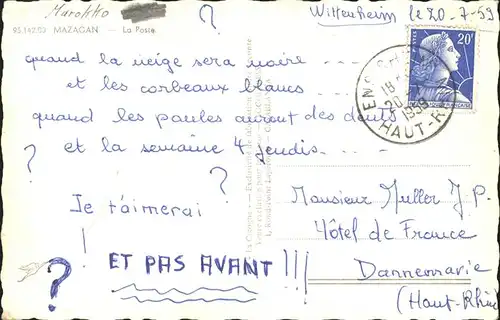 Marokko
?
Wittenheim le 20-7-59
95.142.03 MAZAGAN — La Poste
quand la neige sera noire ---
et les corbeaux blancs ---
quand les poules auront des dents
et la semaine 4 jeudis ---
?
?
Je t'aimerai
!
ET PAS AVANT !!!
?
20F
18
20
1959
HAUT-R
Monsieur Muller J.P.
Hôtel de France
Dannemarie
(Haut-Rhin)